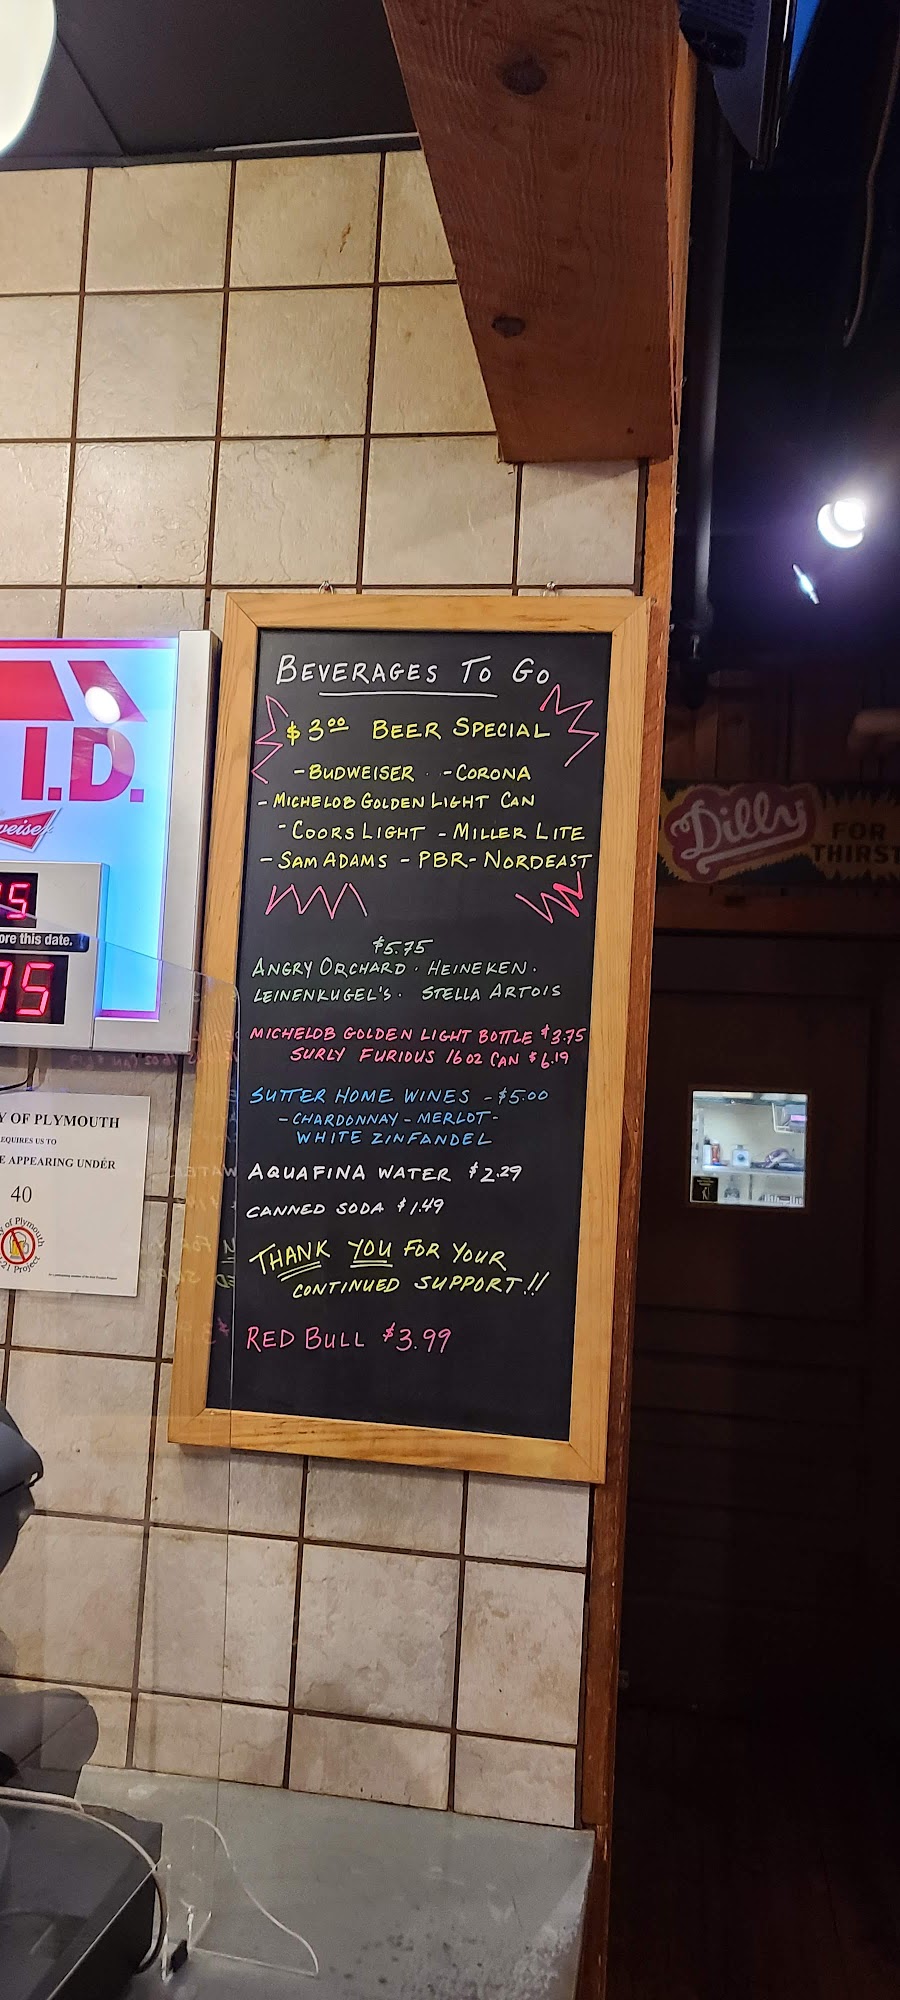 BEVERAGES TO GO
$3.00 BEER SPECIAL
-BUDWEISER -CORONA
-MICHELOB GOLDEN LIGHT CAN
-COORS LIGHT -MILLER LITE
-SAM ADAMS -PBR-NORDEAST
$5.75
ANGRY ORCHARD · HEINEKEN ·
LEINENKUGEL'S · STELLA ARTOIS
MICHELOB GOLDEN LIGHT BOTTLE $3.75
SURLY FURIOUS 16 OZ CAN $6.19
SUTTER HOME WINES -$5.00
-CHARDONNAY-MERLOT-
WHITE ZINFANDEL
AQUAFINA WATER $2.29
CANNED SODA $1.49
THANK YOU FOR YOUR
CONTINUED SUPPORT!!
RED BULL $3.99
I.D.
weiser
5
ore this date.
75
Y OF PLYMOUTH
EQUIRES US TO
E APPEARING UNDER
40
y of Plymouth
21 Project
Dilly
FOR
THIRST